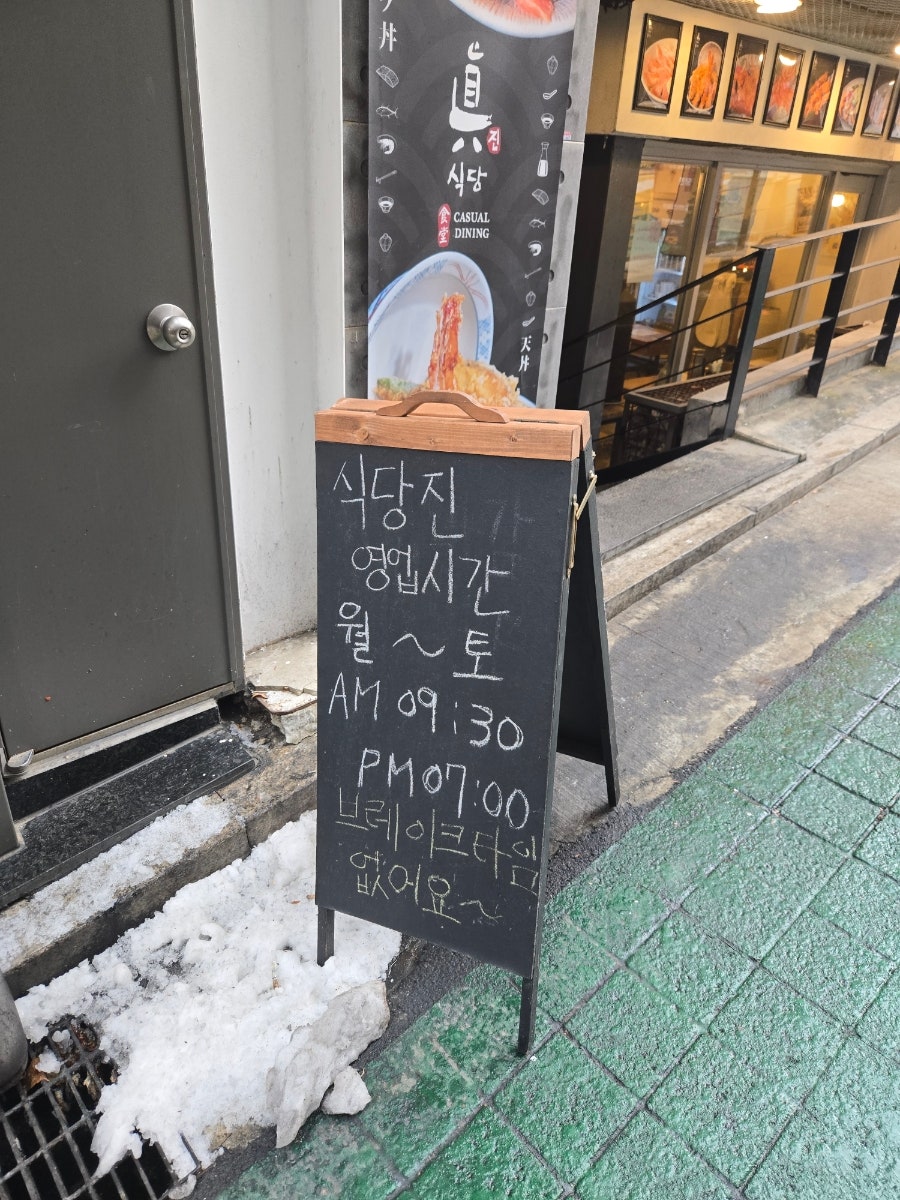 丼
眞
진
식당
食堂
CASUAL
DINING
天丼
식당진
영업시간
월 ~ 토
AM 09:30
PM 07:00
브레이크타임
없어요~